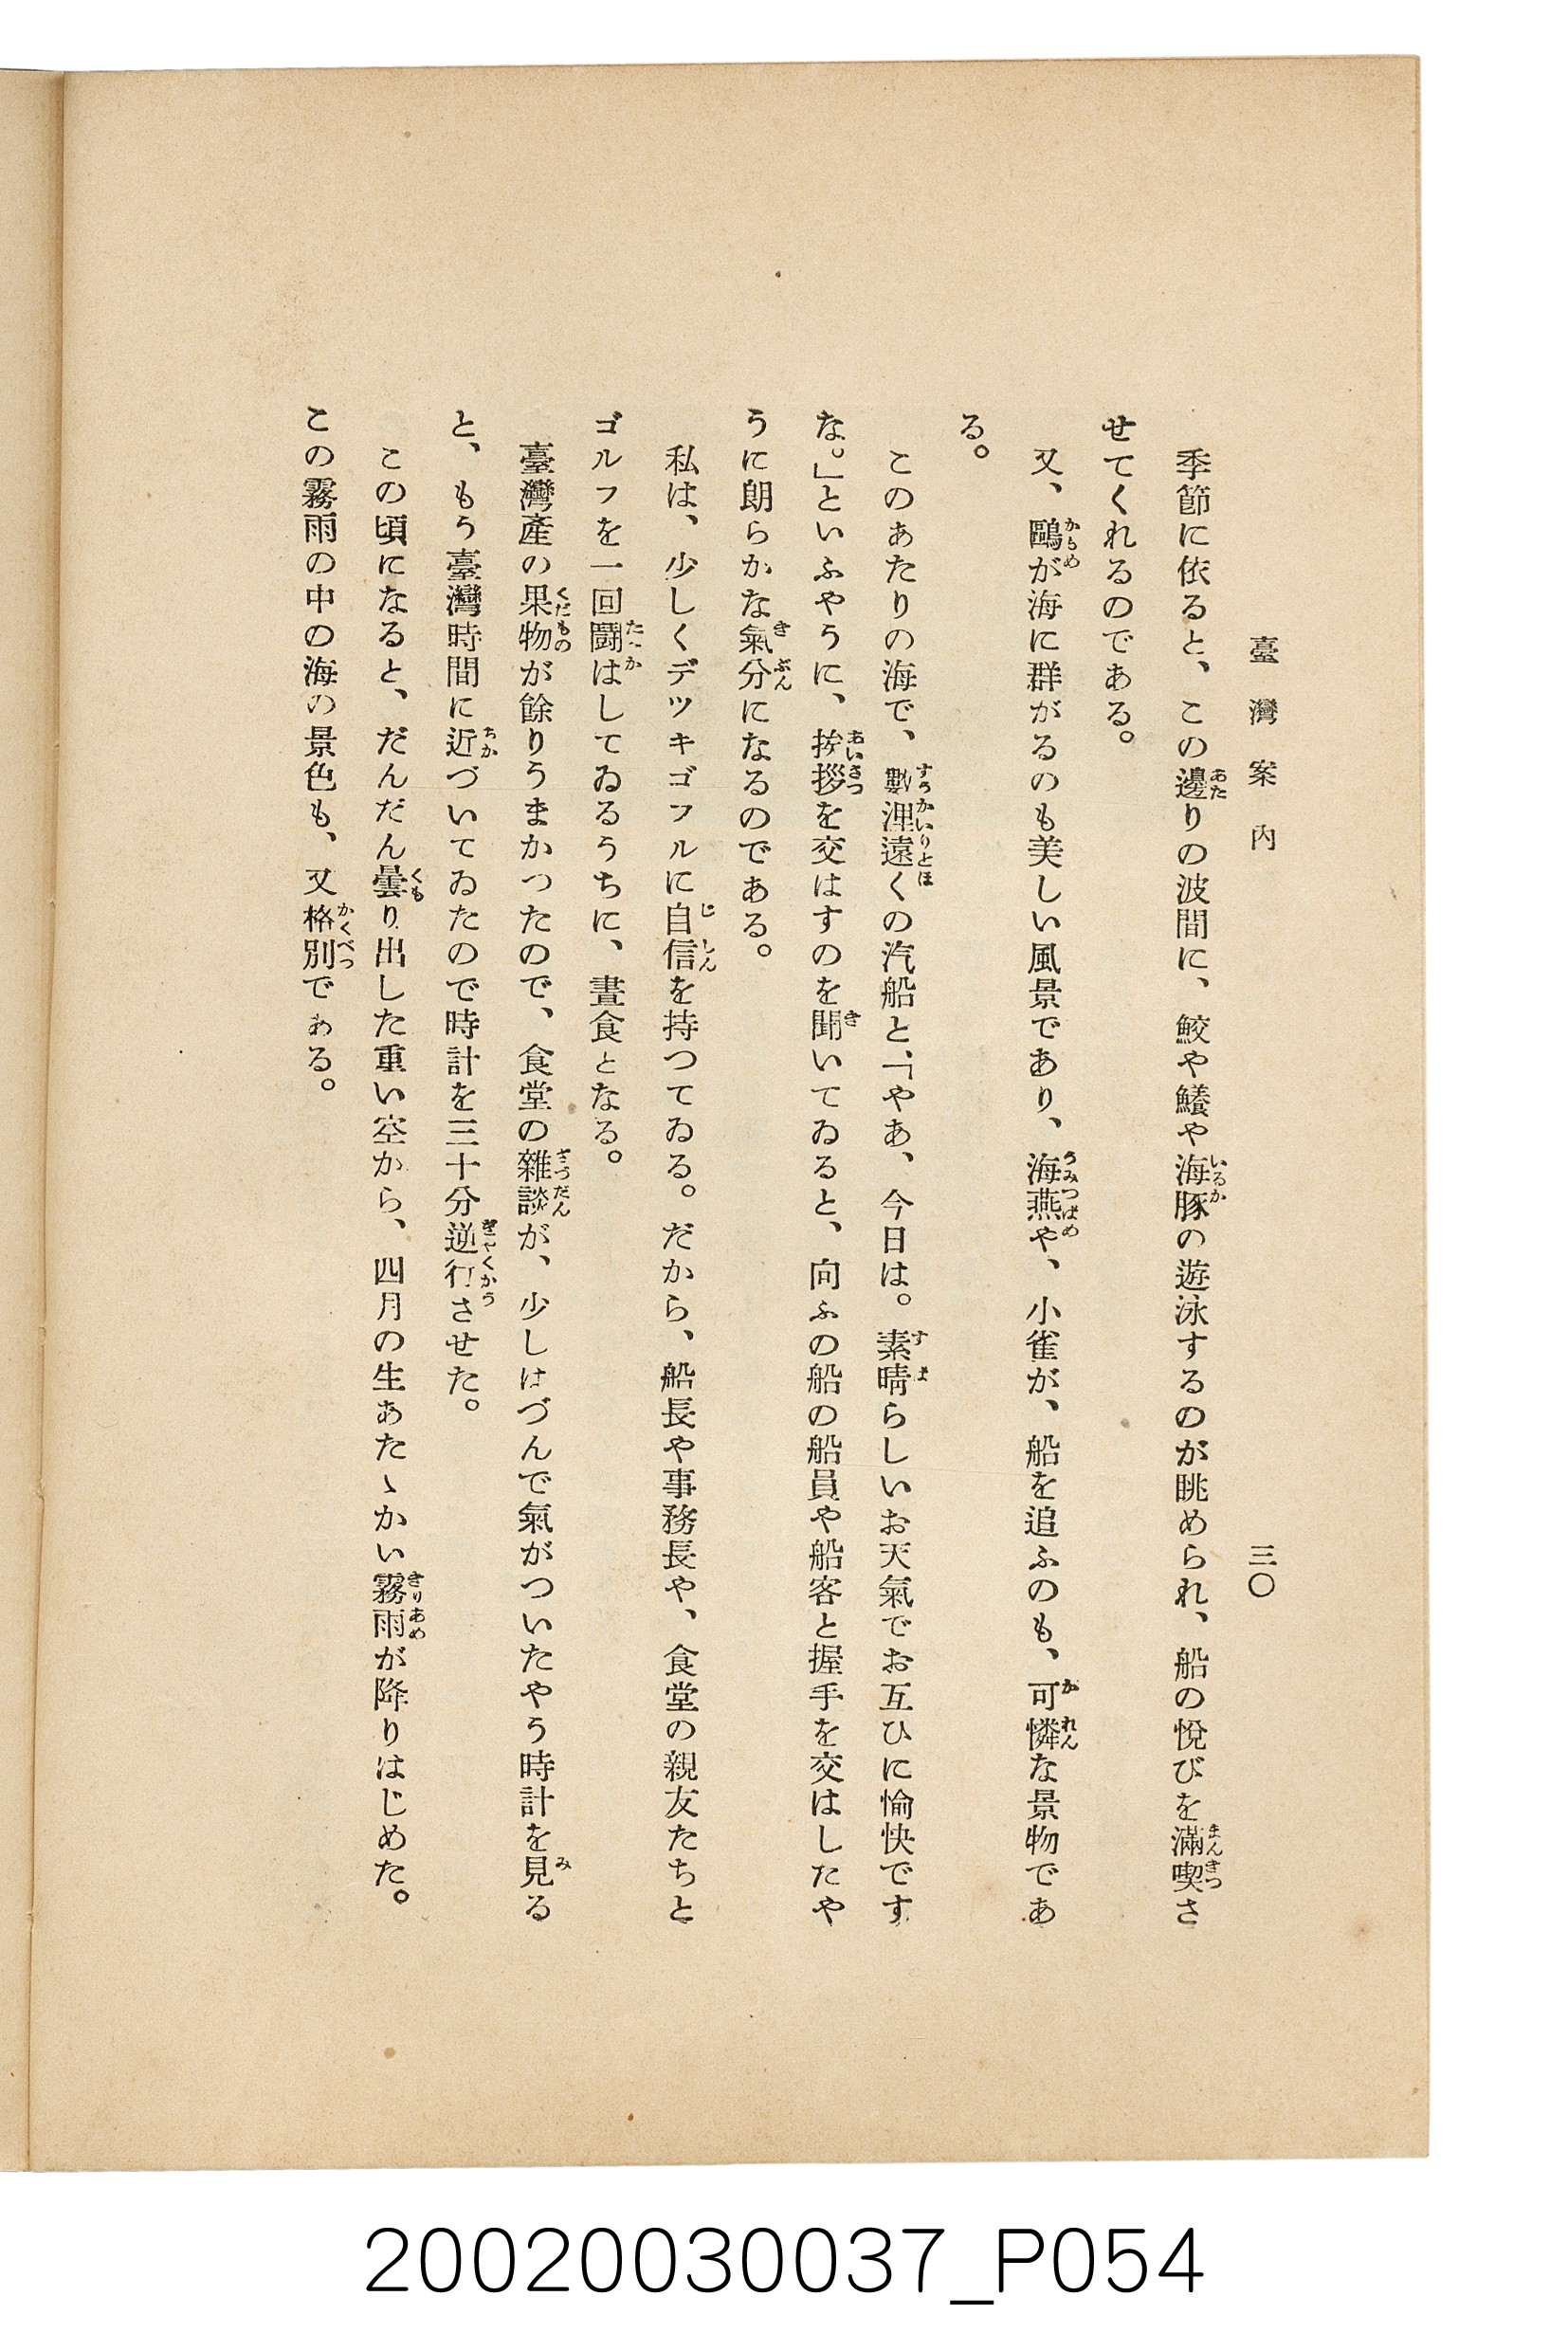 臺灣案內　三〇
季節に依ると、この邊りの波間に、鮫や鱶や海豚の遊泳するのが眺められ、船の悅びを滿喫さ
せてくれるのである。
又、鷗が海に群がるのも美しい風景であり、海燕や、小雀が、船を追ふのも、可憐な景物であ
る。
このあたりの海で、數浬遠くの汽船と、「やあ、今日は。素晴らしいお天氣でお互ひに愉快です
な。」といふやうに、挨拶を交はすのを聞いてゐると、向ふの船の船員や船客と握手を交はしたや
うに朗らかな氣分になるのである。
私は、少しくデツキゴフルに自信を持つてゐる。だから、船長や事務長や、食堂の親友たちと
ゴルフを一回鬪はしてゐるうちに、晝食となる。
臺灣產の果物が餘りうまかつたので、食堂の雜談が、少しはづんで氣がついたやう時計を見る
と、もう臺灣時間に近づいてゐたので時計を三十分逆行させた。
この頃になると、だんだん曇り出した重い空から、四月の生あたゝかい霧雨が降りはじめた。
この霧雨の中の海の景色も、又格別である。
20020030037_P054